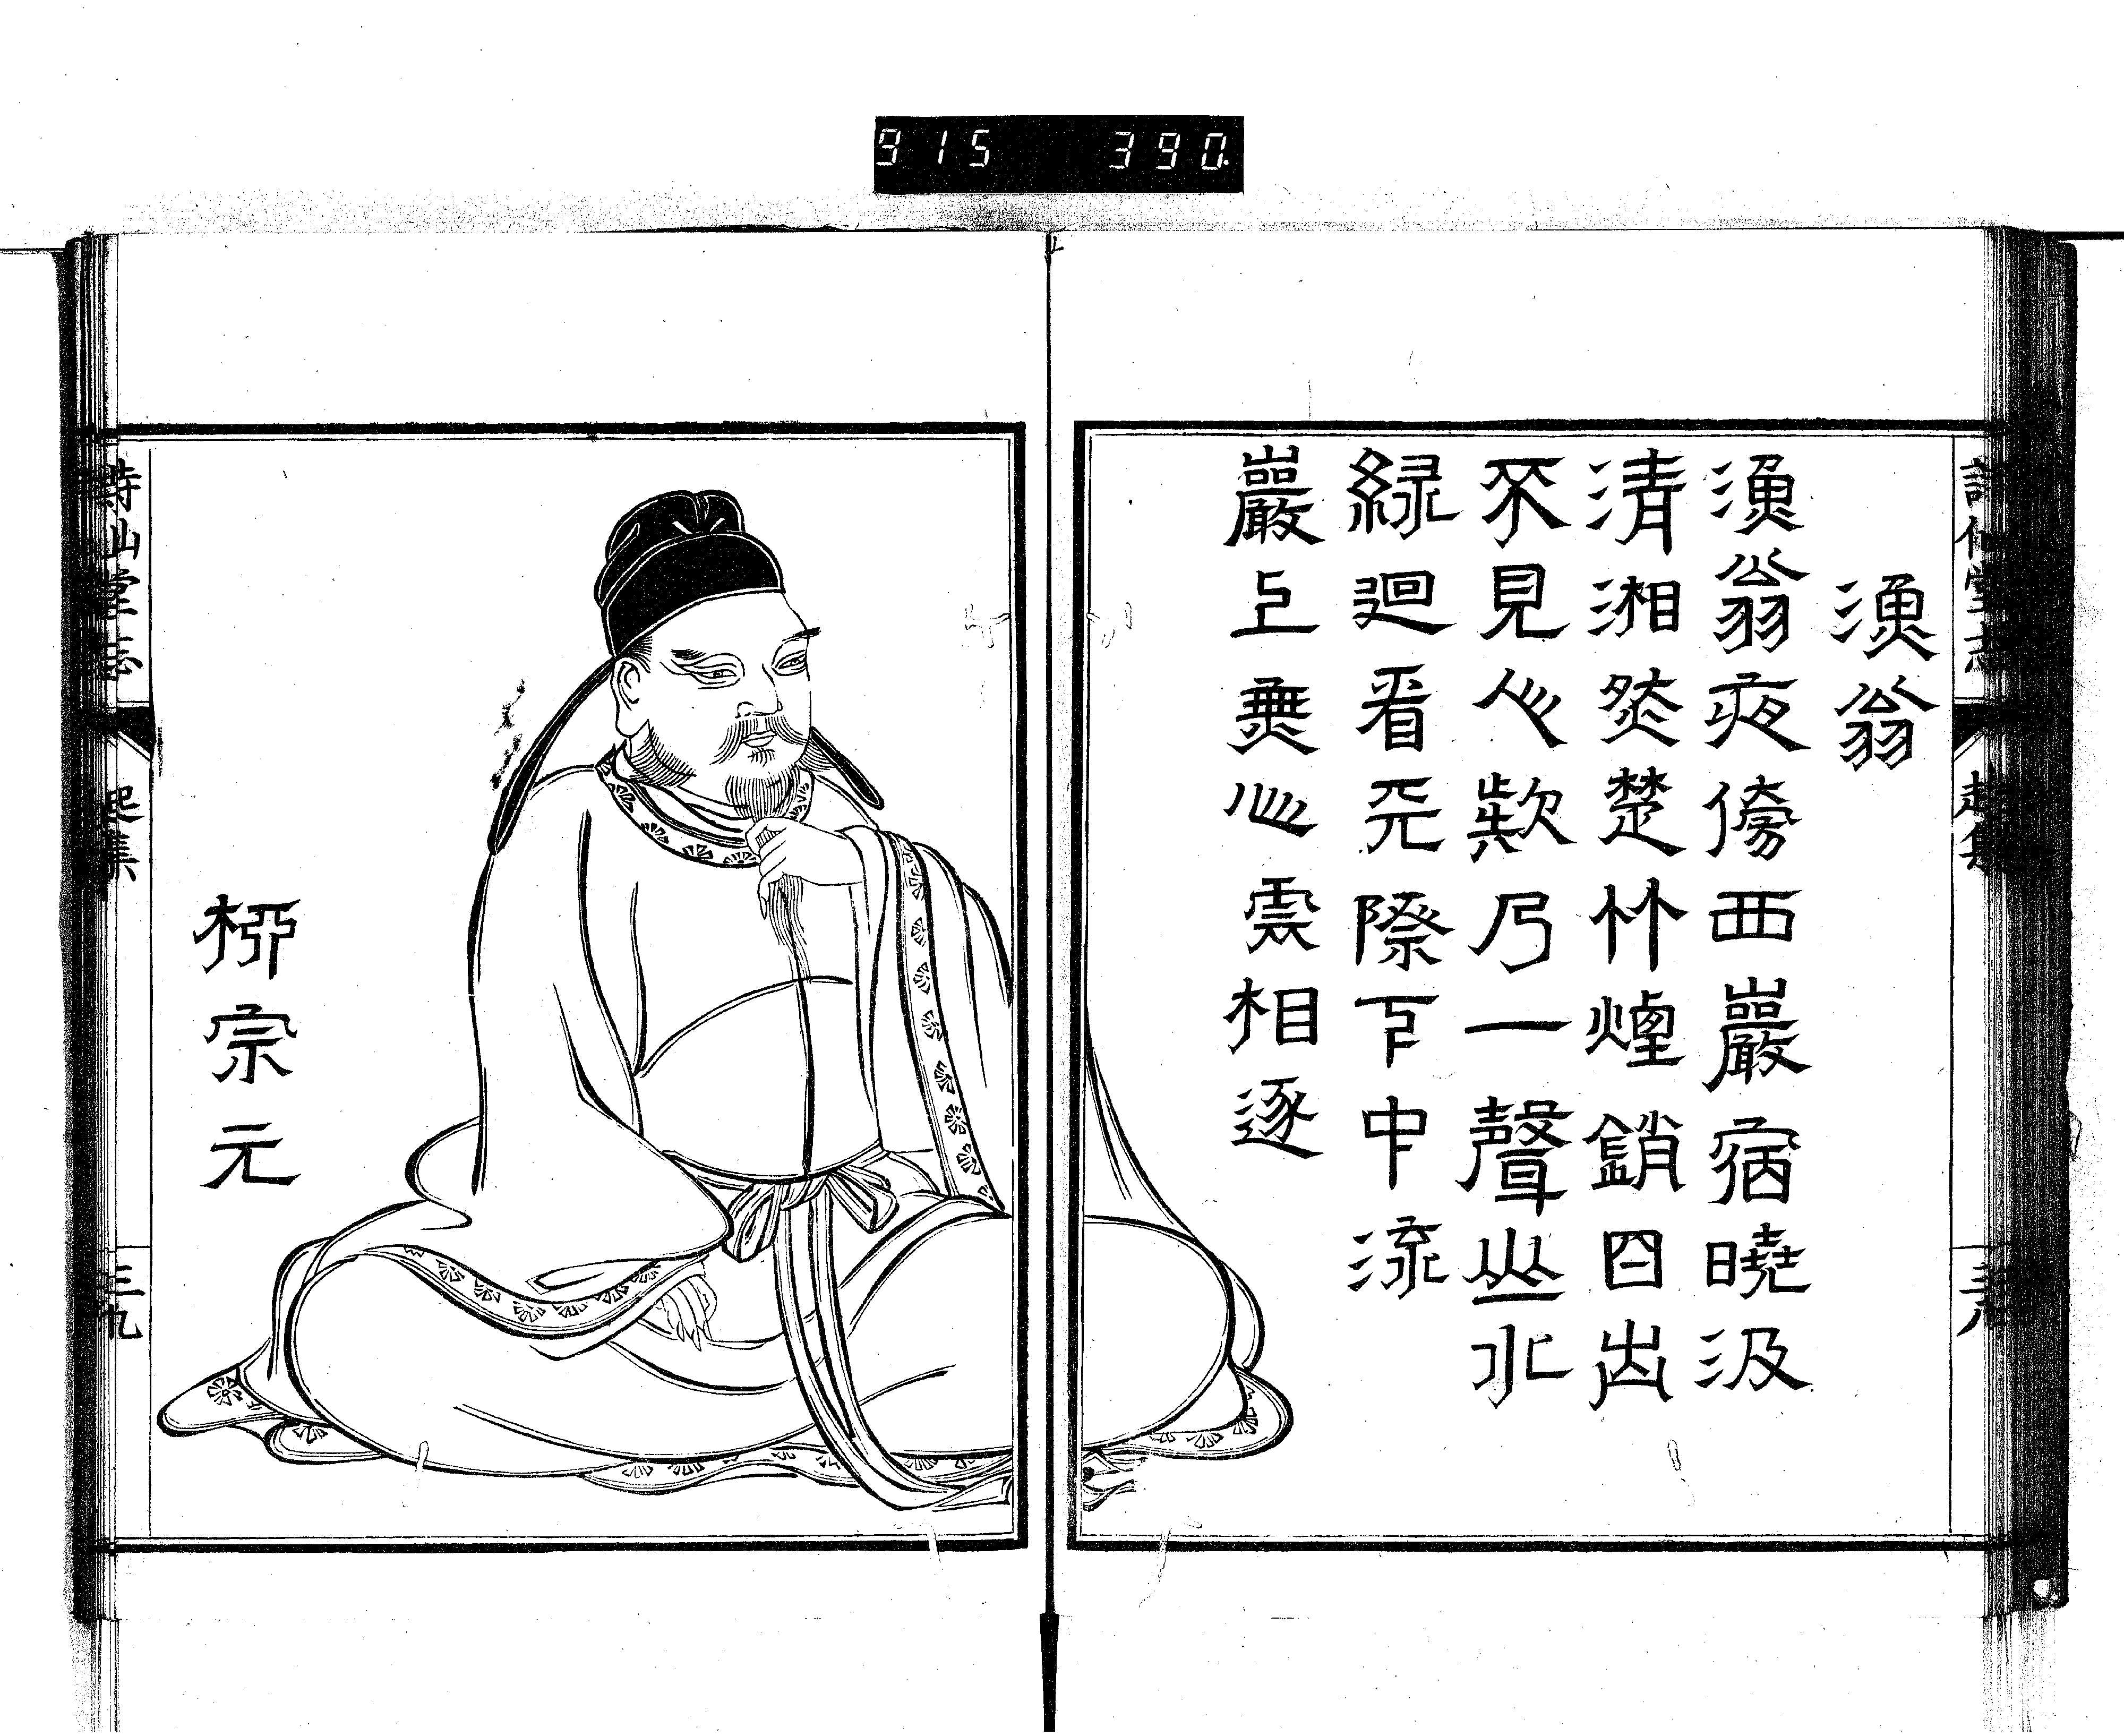 915 390
詩仙堂志 起集
漁翁
漁翁夜傍西巖宿曉汲
清湘然楚竹煙銷日出
不見人欸乃一聲山水
緑迴看天際下中流
巖上無心雲相逐
柳宗元
詩仙堂志 起集 三九